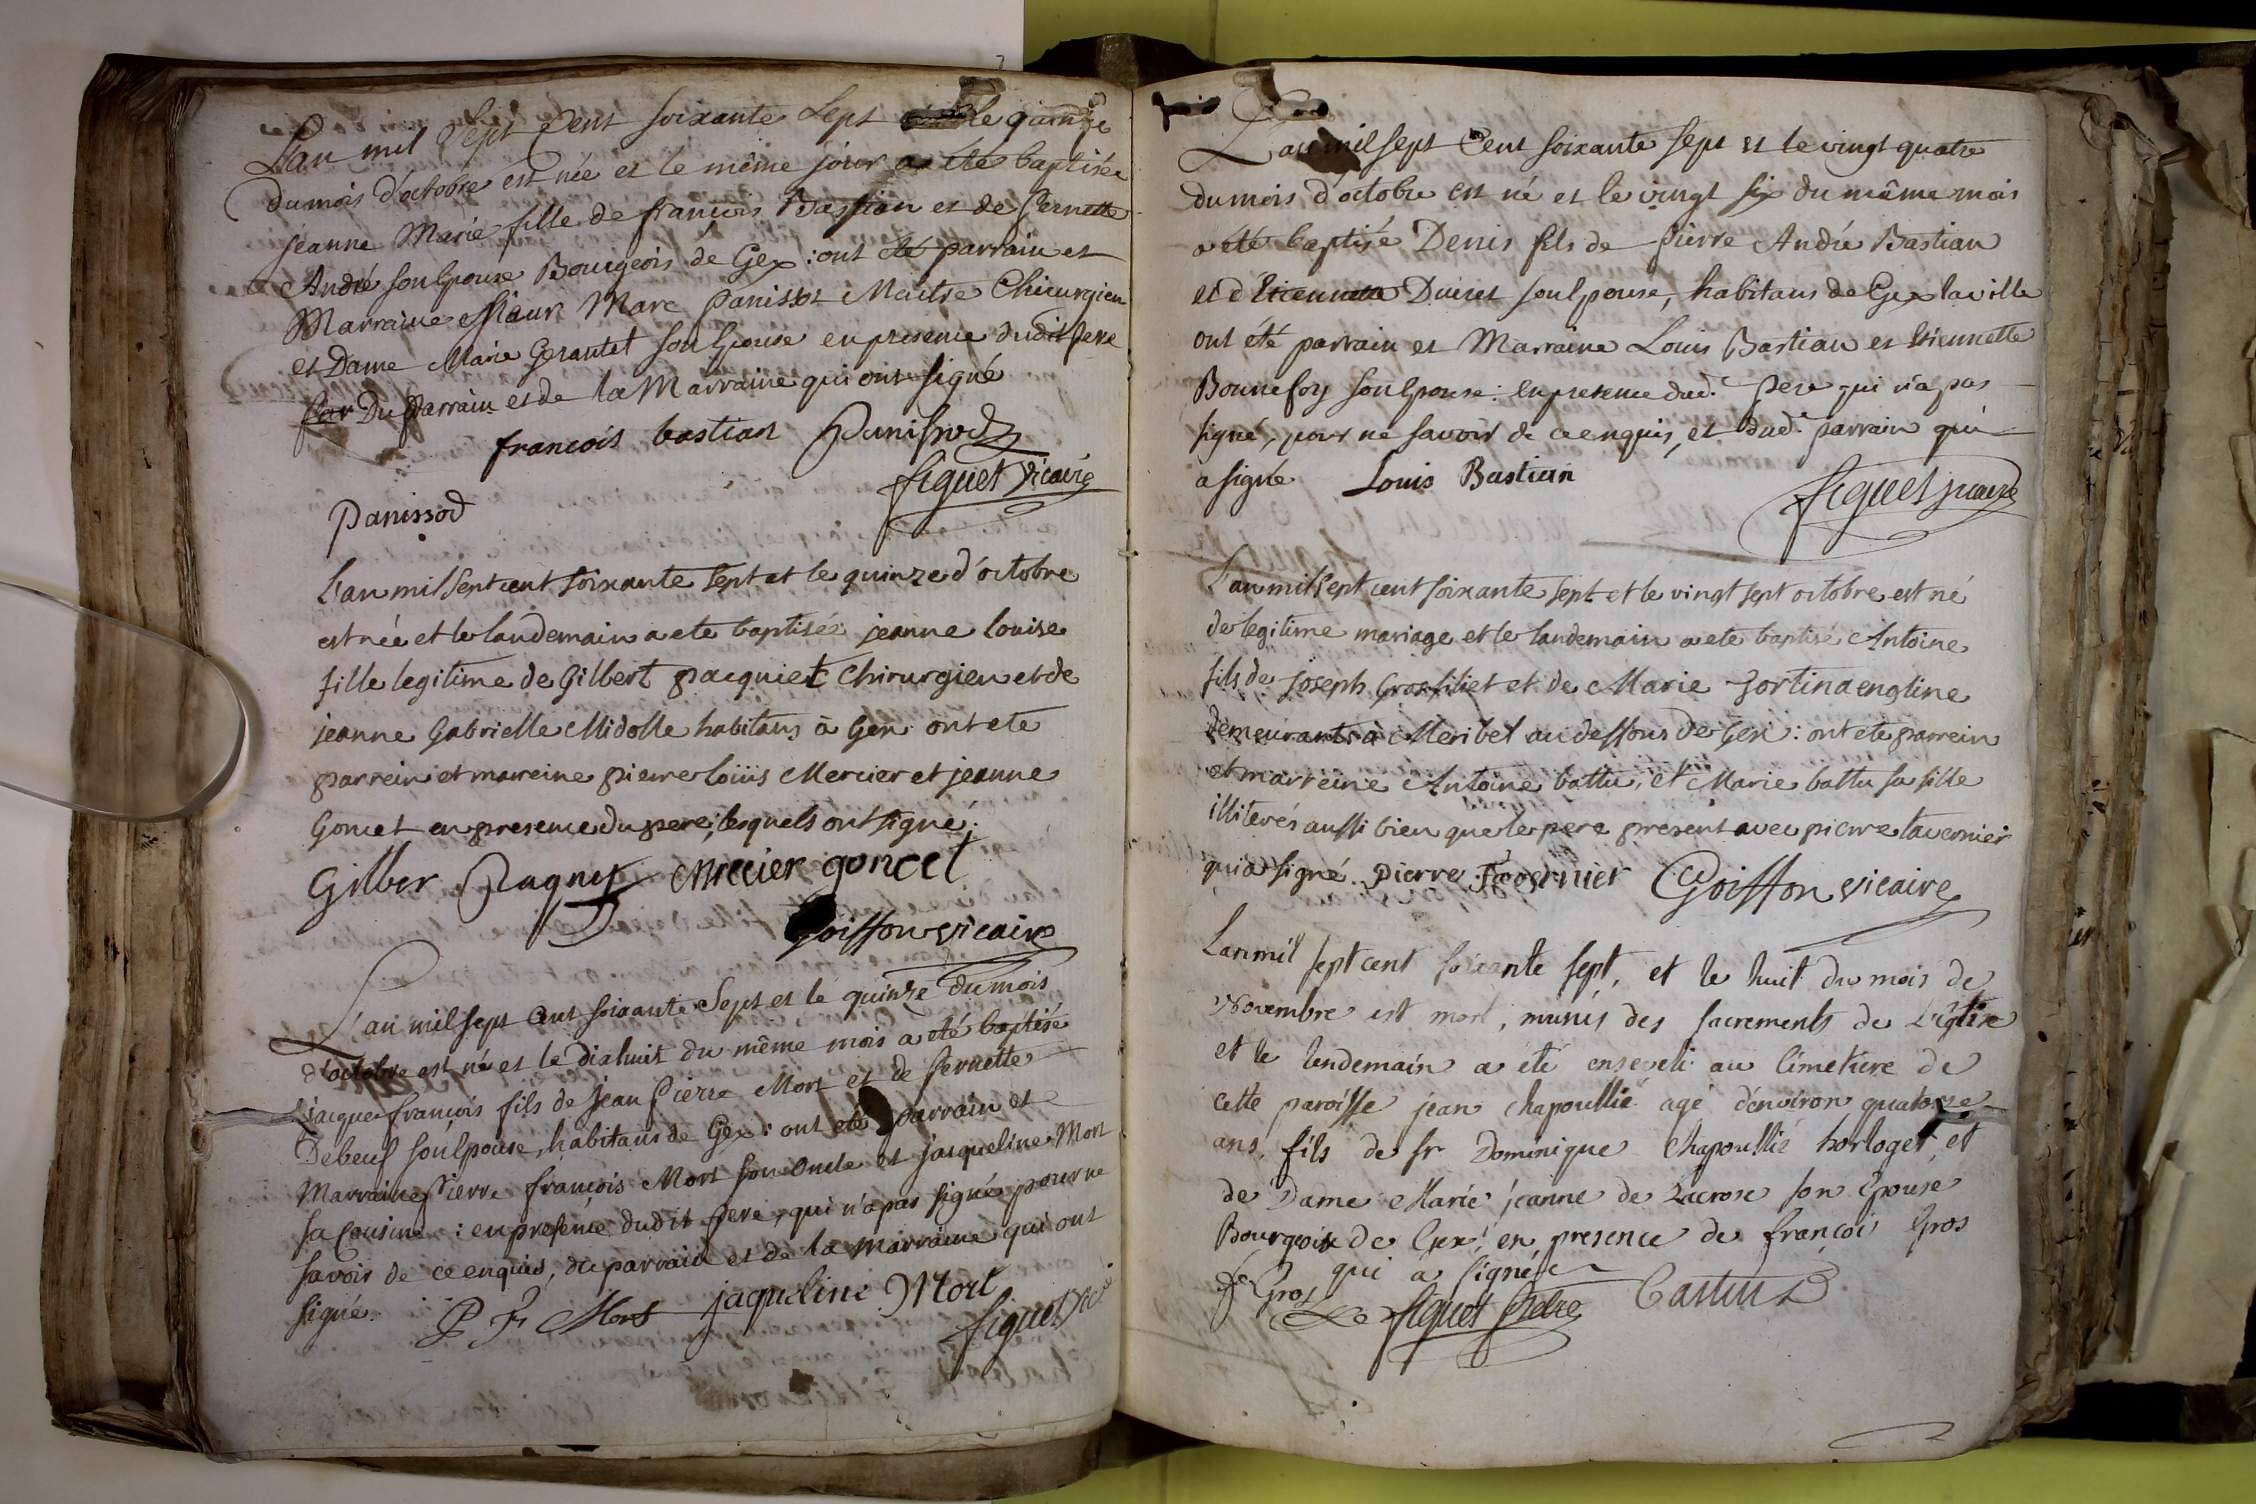 L'an mil Sept Cent soixante Sept le quinze
du mois d'octobre est née et le même jour a été baptisée
jeanne Marie fille de françois Bastian et de Pernette
André son Epouse Bourgeois de Gex : ont été parrain et
Marraine Sieur Marc Panissot Maitre Chirurgien
et Dame Marie Gerantet son Epouse en presence dudit Pere
Du Parrain et de la Marraine qui ont signé
francois bastian Panissod
figuet vicaire
Panissod
L'an mil sept cent soixante sept et le quinze d'octobre
est née et le landemain a ete baptisée jeanne louise
fille legitime de Gilbert pacquiet Chirurgien et de
jeanne Gabrielle Midolle habitans à Gex ont ete
parrein et marreine pierre loüis Mercier et jeanne
Goncet en presence du pere, lesquels ont signé.
Gilber Paquet Mercier goncet
Goiffon vicaire
L'an mil sept Cent soixante Sept et le quinze du mois
d'octobre est né et le dixhuit du même mois a été baptisé
jacque françois fils de jean Pierre Mort et de Pernette
Debeuf son Epouse, habitans de Gex : ont été parrain et
Marraine Pierre françois Mort son Oncle et jacqueline Mort
sa Cousine : en presence dudit Pere, qui n'a pas signé pour ne
savoir de ce enquis, du parrain et de la Marraine qui ont
signé. P F Mort jaqueline Mort
figuet vic.
L'an mil sept Cent soixante sept et le vingt quatre
du mois d'octobre est né et le vingt six du même mois
a été baptisé Denis fils de Pierre André Bastian
et d'Etiennette Duiret son Epouse, habitans de Gex la ville
ont été parrain et Marraine Louis Bastian et Etiennette
Bonnefoy son Epouse : En presence dud. Pere qui n'a pas
signé, pour ne savoir de ce enquis, et dud. parrain qui
a signé Louis Bastian
figuet vicaire
L'an mil sept cent soixante sept et le vingt sept octobre est né
de legitime mariage et le landemain a ete baptisé Antoine
fils de joseph Grosfiliet et de Marie
demeurants à Meribel au dessous de Gex : ont ete parrein
et marreine Antoine battu, et Marie battu sa fille
illiterés aussi bien que le pere present avec pierre tavernier
qui a signé. pierre Tavernier Goiffon vicaire
L'an mil sept cent soixante sept, et le huit du mois de
Novembre est mort, munis des sacrements de L'église
et le lendemain a été enseveli au Cimetiere de
cette paroisse jean Chapoullié agé d'environ quatorze
ans, fils de sr Dominique Chapoullié horloger, et
de Dame Marie jeanne de Lacrose son Epouse
Bourgeois de Gex, en presence de françoi Gros
qui a signé
f Gros
figuet Pretre Castin